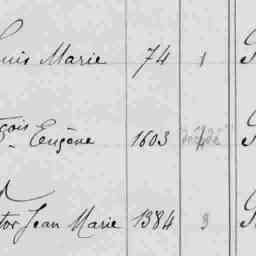 ouis Marie 74 1
çois Eugène 1603 décédé
tor Jean Marie 1384 3